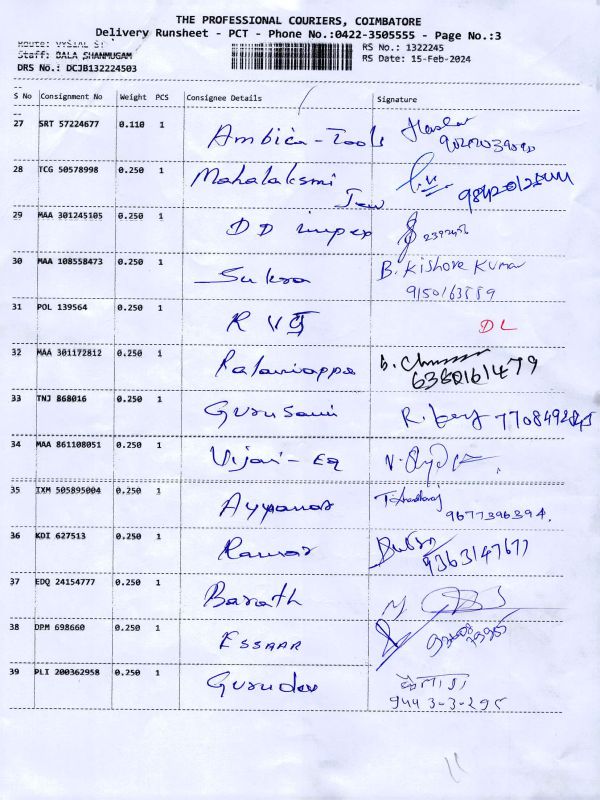 THE PROFESSIONAL COURIERS, COIMBATORE
Delivery Runsheet - PCT - Phone No.:0422-3505555 - Page No.:3
Route: VYSIAL ST
RS No.: 1322245
Staff: BALA SHANMUGAM
RS Date: 15-Feb-2024
DRS No.: DCJB132224503
S No Consignment No Weight PCS Consignee Details Signature
27 SRT 57224677 0.110 1 Ambica - Tools
28 TCG 50578998 0.250 1 Mahalaksmi Jew
29 MAA 301245105 0.250 1 DD impex
30 MAA 108558473 0.250 1 Sukra B. Kishore Kumar
9150163889
31 POL 139564 0.250 1 R V G DL
32 MAA 301172812 0.250 1 Palaniappa
6380161479
33 TNJ 868016 0.250 1 Gurusami
34 MAA 861108051 0.250 1 Vijai - EQ
35 IXM 505895004 0.250 1 Ayyanar
9677396394.
36 KDI 627513 0.250 1 Ramar
9363147677
37 EDQ 24154777 0.250 1 Barath
38 DPM 698660 0.250 1 ESSAAR
39 PLI 200362958 0.250 1 Gurudev
9443-3-295